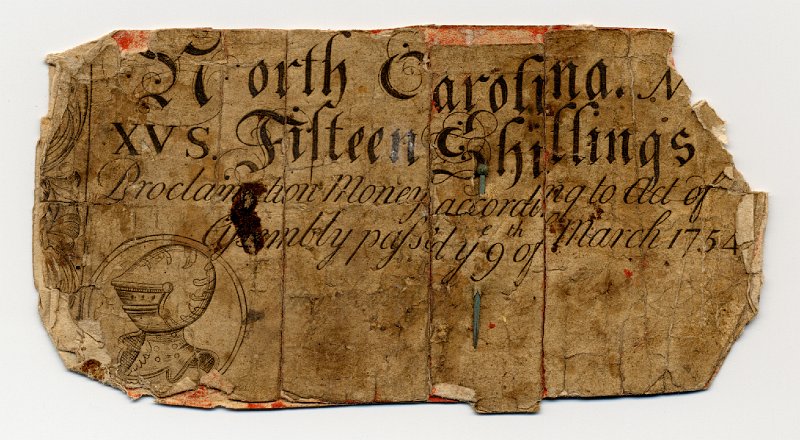 North Carolina. N
XVS. Fifteen Shillings
Proclamation Money according to Act of
Assembly pass'd yᵉ 9ᵗʰ of March 1754